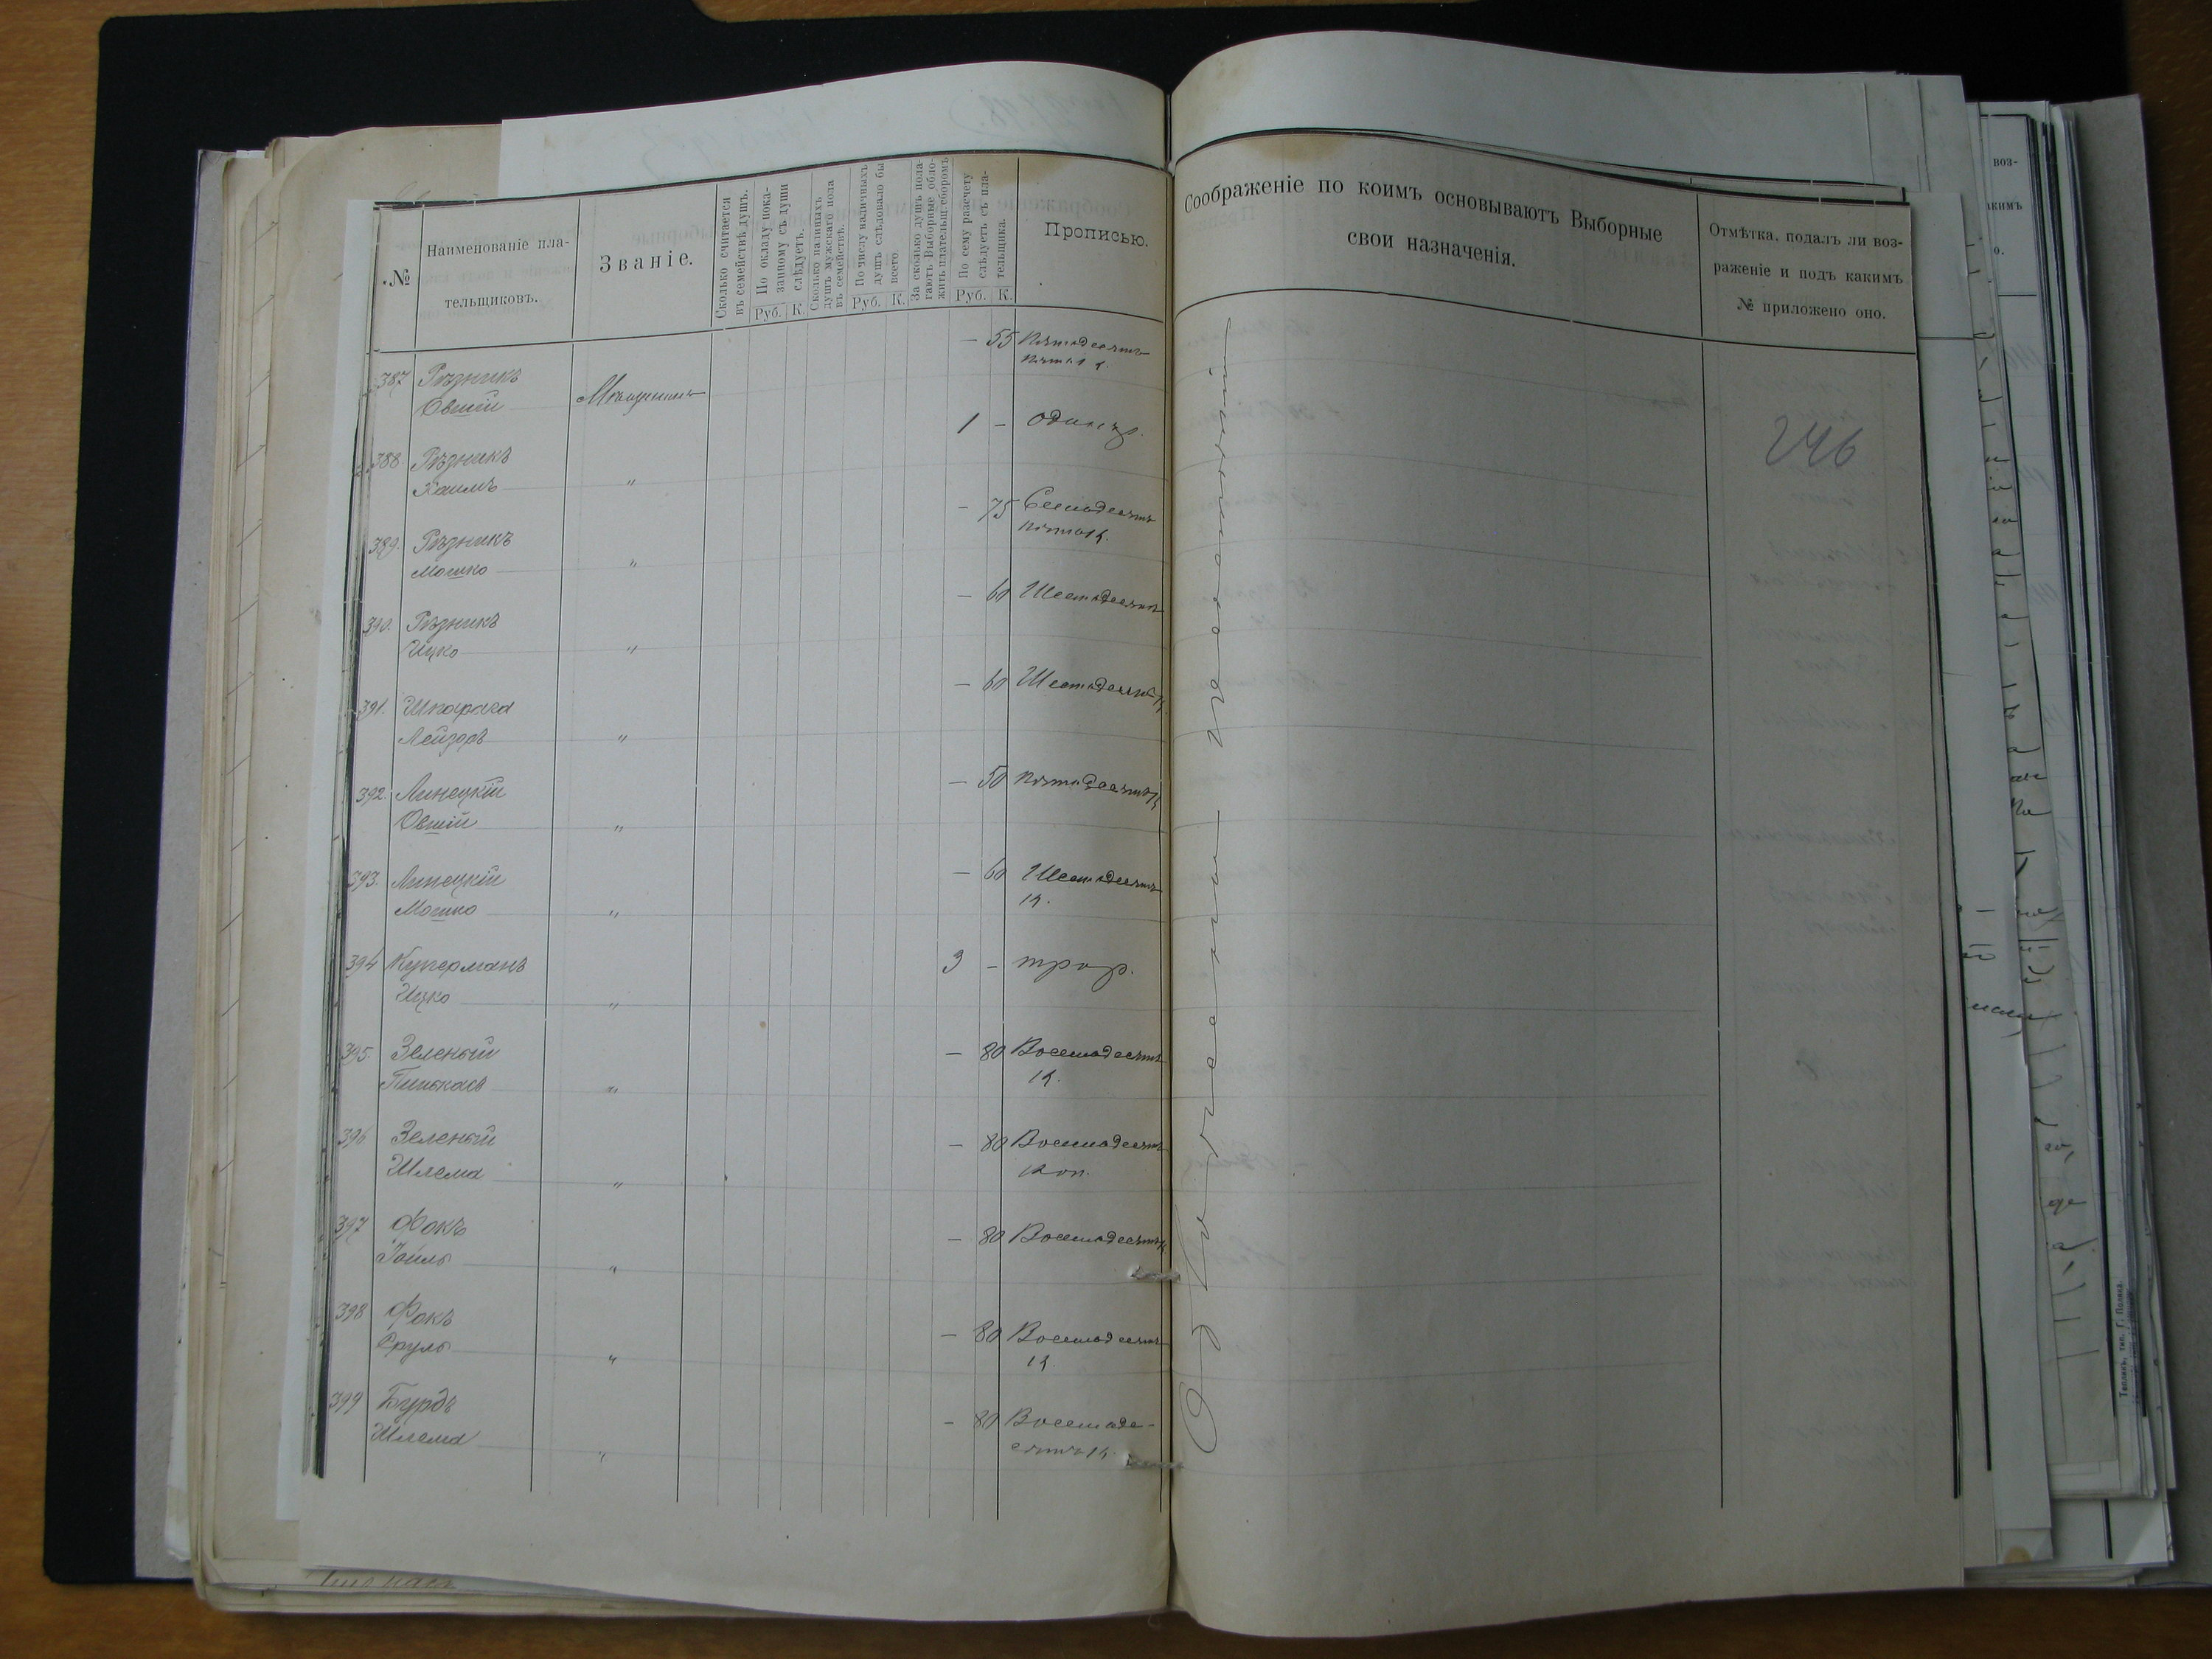 №
Наименованіе пла-
тельщиковъ.
Званіе.
Сколько считается
въ семействѣ душъ.
По окладу пока-
занному съ души
слѣдуетъ.
Руб. К.
Сколько наличныхъ
душъ мужскаго пола
въ семействѣ.
По числу наличныхъ
душъ слѣдовало бы
всего.
Руб. К.
За сколько душъ пола-
гаютъ Выборные обло-
жить плательщ. сборомъ
По сему разсчету
слѣдуетъ съ пла-
тельщика.
Руб. К.
Прописью.
Соображеніе по коимъ основываютъ Выборные
свои назначенія.
Отмѣтка, подалъ ли воз-
раженіе и подъ какимъ
№ приложено оно.
387 Рѣзникъ — 55 Пятьдесятъ
Овшій Мѣщанинъ пять к.
388. Рѣзникъ 1 — Одинъ р.
Хаимъ "
389. Рѣзникъ — 75 Семьдесятъ
Мошко " пять к.
390. Рѣзникъ — 60 Шестьдесятъ
Ицко "
391. Шпарага — 60 Шестьдесятъ к
Лейзоръ "
392. Линецкій — 50 Пятьдесятъ к
Овшій "
393. Линецкій — 60 Шестьдесятъ
Мошко " к.
394 Кугерманъ 3 — три р.
Ицко "
395. Зеленый — 80 Восемьдесятъ
Пинхасъ " к.
396 Зеленый — 80 Восемьдесятъ
Шлема " коп.
397 Фокъ — 80 Восемьдесятъ к
Іойлъ "
398 Фокъ — 80 Восемьдесятъ
Сруль " к.
399 Бурдъ — 80 Восемьде-
Шлема " сятъ к.
246